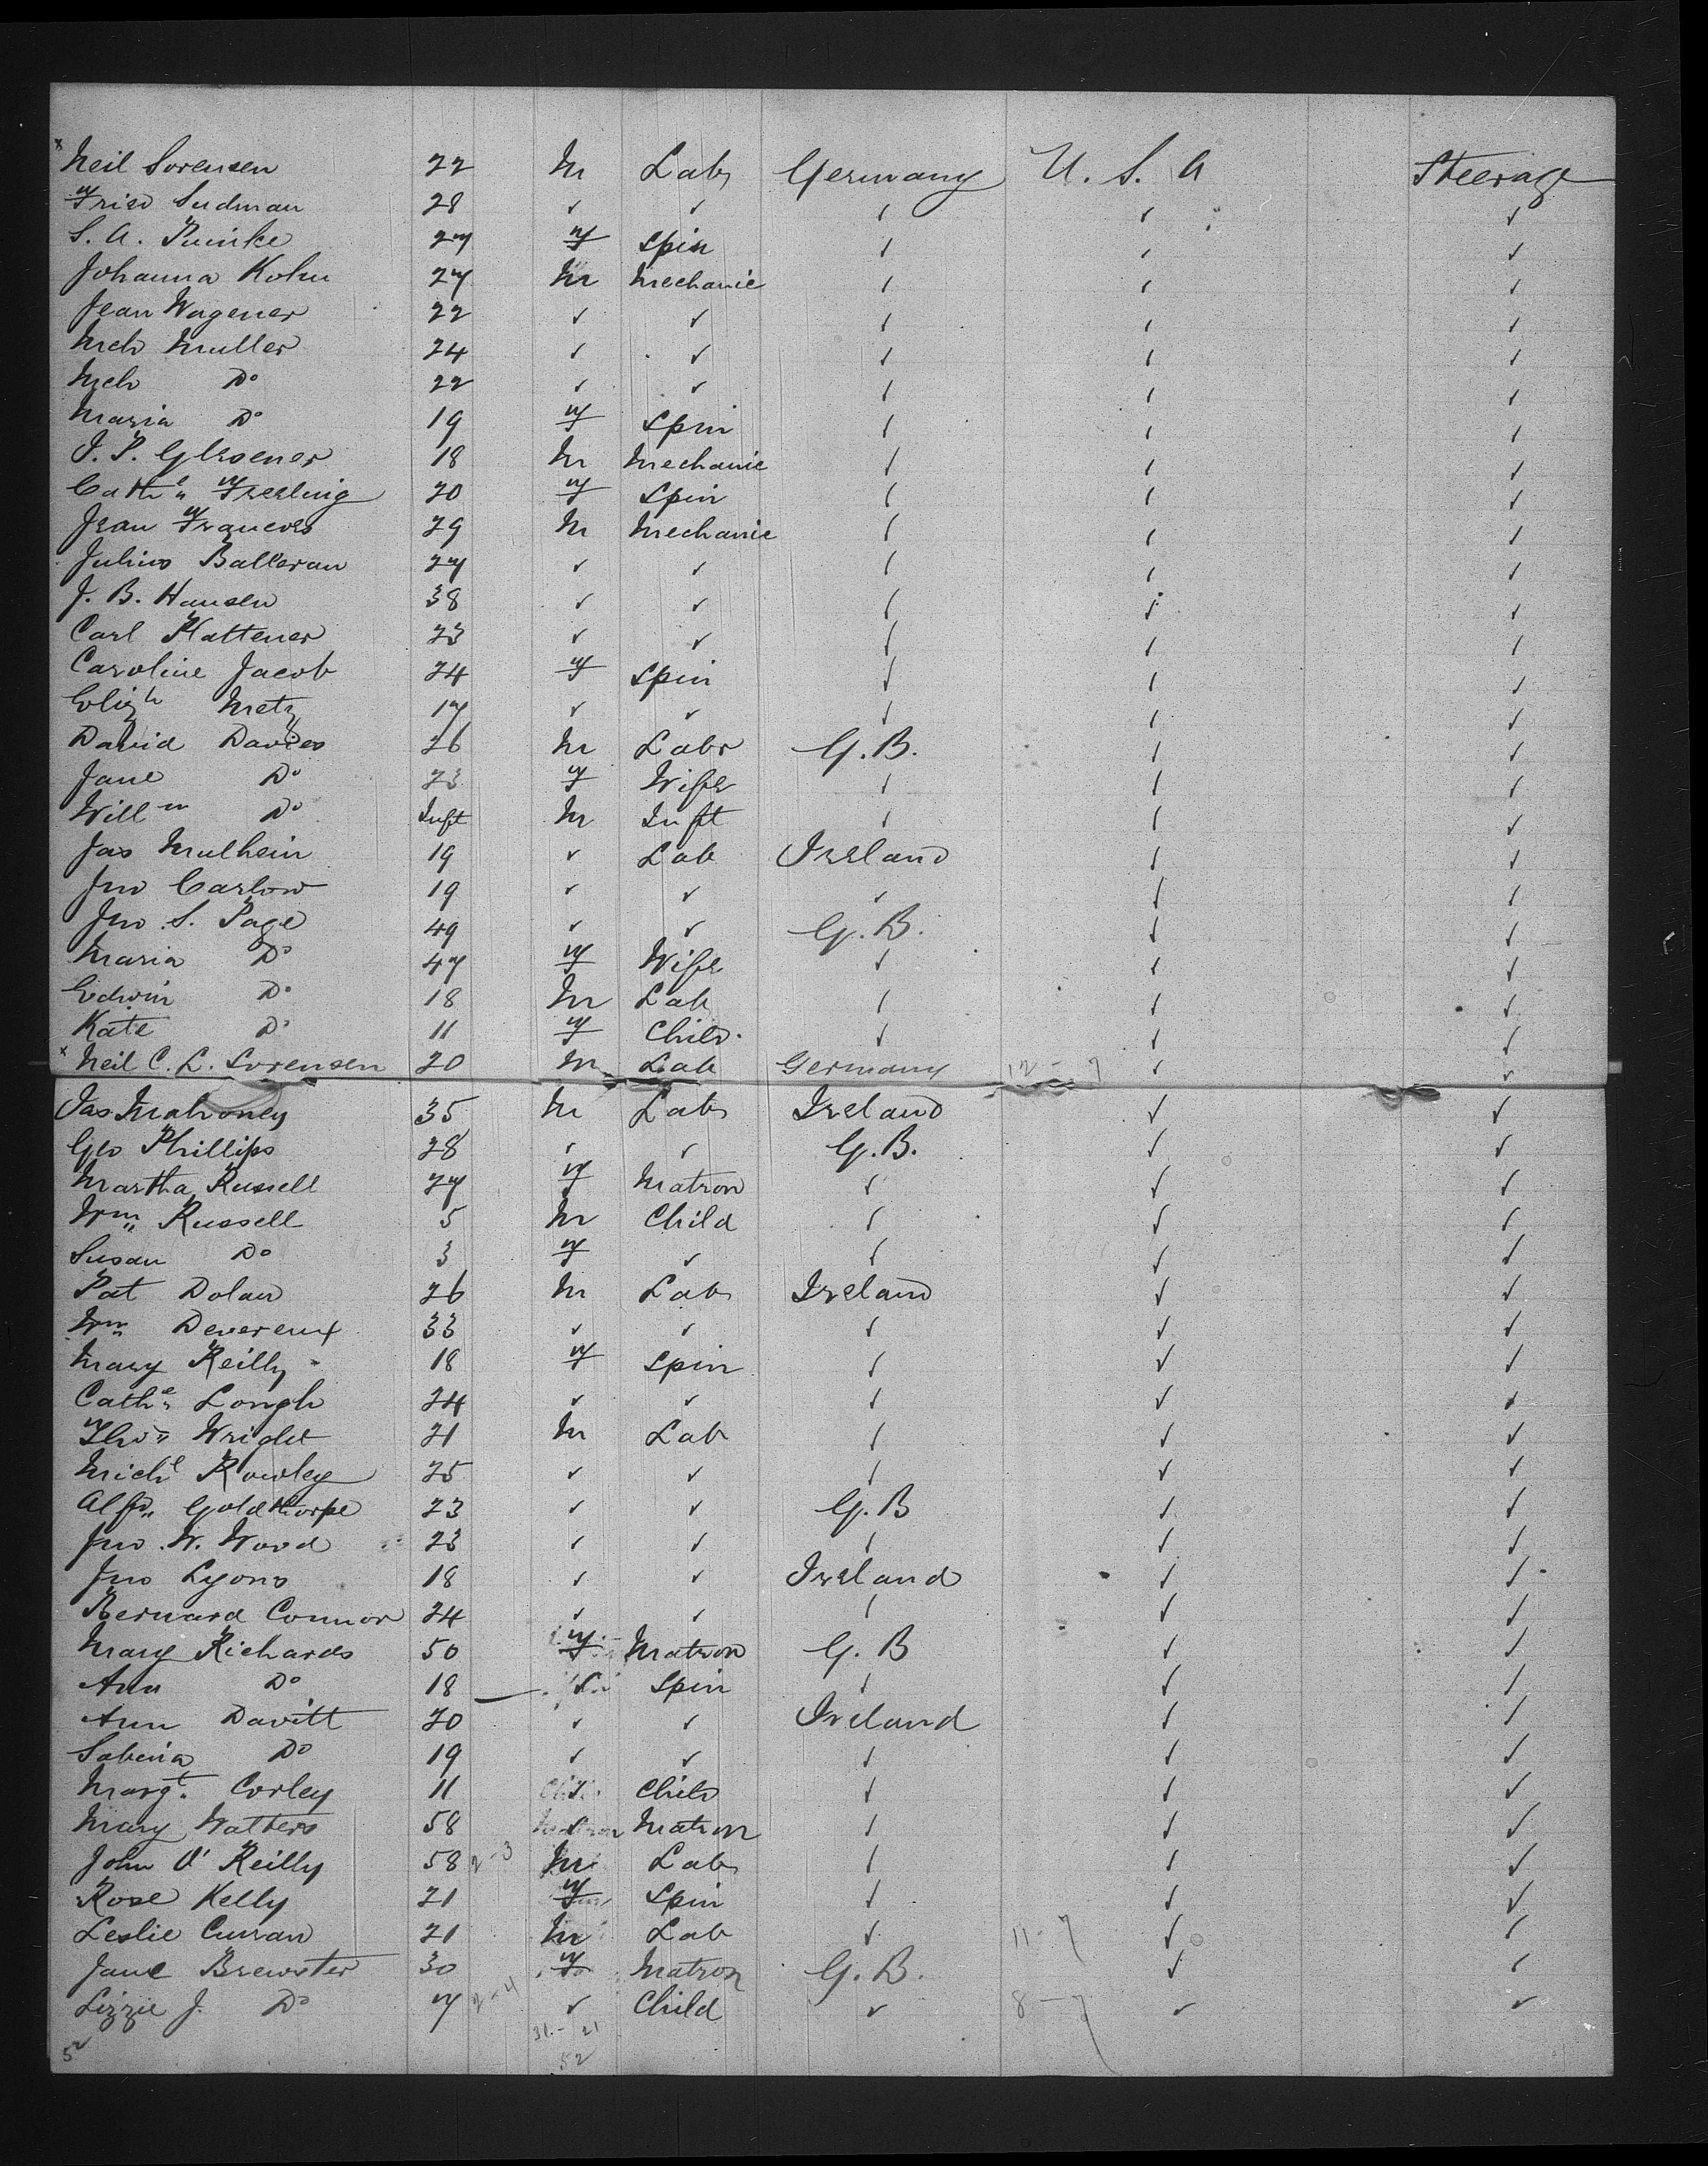 x Neil Sorensen 22 M Lab Germany U. S. A Steerage
Fried Sudman 28 ✓ ✓ ✓ ✓ ✓
S. A. Reinke 27 F Spin ✓ ✓ ✓
Johanna Kohn 27 M Mechanic ✓ ✓ ✓
Jean Wagener 22 ✓ ✓ ✓ ✓ ✓
Mch Muller 24 ✓ ✓ ✓ ✓ ✓
Mch Do 22 ✓ ✓ ✓ ✓ ✓
Maria Do 19 F Spin ✓ ✓ ✓
J. P. Glesener 18 M Mechanic ✓ ✓ ✓
Cathe Freeling 20 F Spin ✓ ✓ ✓
Jean Francois 29 M Mechanic ✓ ✓ ✓
Julius Balleran 27 ✓ ✓ ✓ ✓ ✓
J. B. Hansen 38 ✓ ✓ ✓ ✓ ✓
Carl Plattener 23 ✓ ✓ ✓ ✓ ✓
Caroline Jacob 24 F Spin ✓ ✓ ✓
Elizh Metz 17 ✓ ✓ ✓ ✓ ✓
David Davies 26 M Labr G. B. ✓ ✓
Jane Do 23 F Wife ✓ ✓ ✓
Willm Do Inft M Inft ✓ ✓ ✓
Jas Mulhein 19 ✓ Lab Ireland ✓ ✓
Jno Carlow 19 ✓ ✓ ✓ ✓ ✓
Jno. S. Page 49 ✓ ✓ G. B. ✓ ✓
Maria Do 47 F Wife ✓ ✓ ✓
Edwin Do 18 M Lab ✓ ✓ ✓
Kate Do 11 F Child. ✓ ✓ ✓
x Neil C. L. Sorensen 20 M Lab Germany 12 - 7 ✓ ✓
Jas Mahoney 35 M Lab Ireland ✓ ✓
Geo Phillips 28 ✓ ✓ G. B. ✓ ✓
Martha Russell 27 F Matron ✓ ✓ ✓
Wm Russell 5 M Child ✓ ✓ ✓
Susan Do 3 F ✓ ✓ ✓ ✓
Pat Dolan 26 M Lab Ireland ✓ ✓
Wm Devereux 33 ✓ ✓ ✓ ✓ ✓
Mary Reilly 18 F Spin ✓ ✓ ✓
Cathe Longh 24 ✓ ✓ ✓ ✓ ✓
Tho" Wright 21 M Lab ✓ ✓ ✓
Michl Rowley 25 ✓ ✓ ✓ ✓ ✓
Alfd Goldthorpe 23 ✓ ✓ G. B ✓ ✓
Jno. W. Wood 23 ✓ ✓ ✓ ✓ ✓
Jno Lyons 18 ✓ ✓ Ireland ✓ ✓
Bernard Connor 24 ✓ ✓ ✓ ✓ ✓
Mary Richards 50 F Matron G. B ✓ ✓
Ann Do 18 ✓ Spin ✓ ✓ ✓
Ann Davitt 20 ✓ ✓ Ireland ✓ ✓
Sabina Do 19 ✓ ✓ ✓ ✓ ✓
Margt. Corley 11 ✓ Child ✓ ✓ ✓
Mary Watters 58 ✓ Matron ✓ ✓ ✓
John O'Reilly 58 2-3 M Lab ✓ ✓ ✓
Rose Kelly 21 F Spin ✓ ✓ ✓
Leslie Curran 21 M Lab ✓ 11-7 ✓ ✓
Jane Brewster 30 F Matron G. B. ✓ ✓
Lizzie J. Do 7 2-4 ✓ Child ✓ 8-7 ✓ ✓
31 - 21
52 52